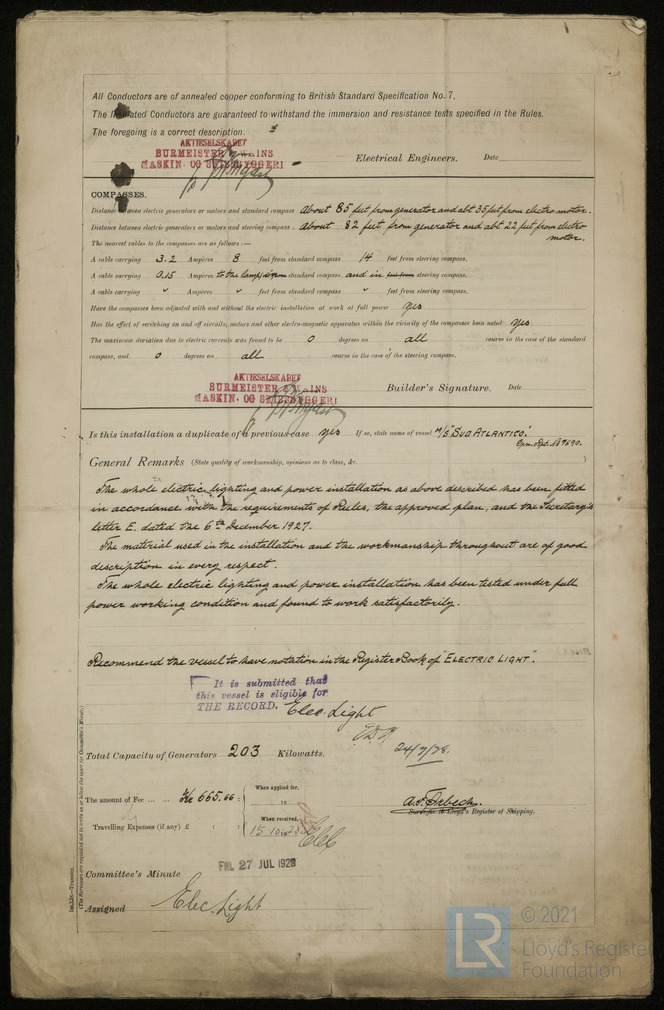 All Conductors are of annealed copper conforming to British Standard Specification No. 7.
The Insulated Conductors are guaranteed to withstand the immersion and resistance tests specified in the Rules.
The foregoing is a correct description.
AKTIESELSKABET
BURMEISTER & WAINS
MASKIN- OG SKIBSBYGGERI
Electrical Engineers. Date
COMPASSES.
Distance between electric generators or motors and standard compass About 85 feet from generator and abt 35 feet from electro motor.
Distance between electric generators or motors and steering compass About 82 feet from generator and abt 22 feet from electro
motor.
The nearest cables to the compasses are as follows:—
A cable carrying 3.2 Ampères 8 feet from standard compass 14 feet from steering compass.
A cable carrying 0.15 Ampères to the lamp in standard compass and in feet from steering compass.
A cable carrying " Ampères " feet from standard compass " feet from steering compass.
Have the compasses been adjusted with and without the electric installation at work at full power yes
Has the effect of switching on and off circuits, motors and other electro-magnetic apparatus within the vicinity of the compasses been noted yes
The maximum deviation due to electric currents was found to be 0 degrees on all course in the case of the standard
compass, and 0 degrees on all course in the case of the steering compass.
AKTIESELSKABET
BURMEISTER & WAINS
MASKIN- OG SKIBSBYGGERI
Builder's Signature. Date
Is this installation a duplicate of a previous case yes If so, state name of vessel M/S "SUD ATLANTICO".
Cpn. Rpt. No 7690.
General Remarks (State quality of workmanship, opinions as to class, &c. )
The whole electric lighting and power installation as above described has been fitted
in accordance with the requirements of Rules, the approved plan, and the Secretary's
letter E. dated the 6th December 1927.
The material used in the installation and the workmanship throughout are of good
description in every respect.
The whole electric lighting and power installation has been tested under full
power working condition and found to work satisfactorily.
Recommend the vessel to have notation in the Register Book of "ELECTRIC LIGHT".
It is submitted that
this vessel is eligible for
THE RECORD. Elec. Light
24/7/28.
Total Capacity of Generators 203 Kilowatts.
The amount of Fee ... ... Kr 665.66 :
When applied for,
19
A. F. Orbech.
Surveyor to Lloyd's Register of Shipping.
Travelling Expenses (if any) £ : :
When received,
15.10.1928
Committee's Minute
FRI. 27 JUL 1928
Assigned Elec. Light
(The Surveyors are requested not to write on or below the space for Committee's Minute.)
© 2021
LR
Lloyd's Register
Foundation